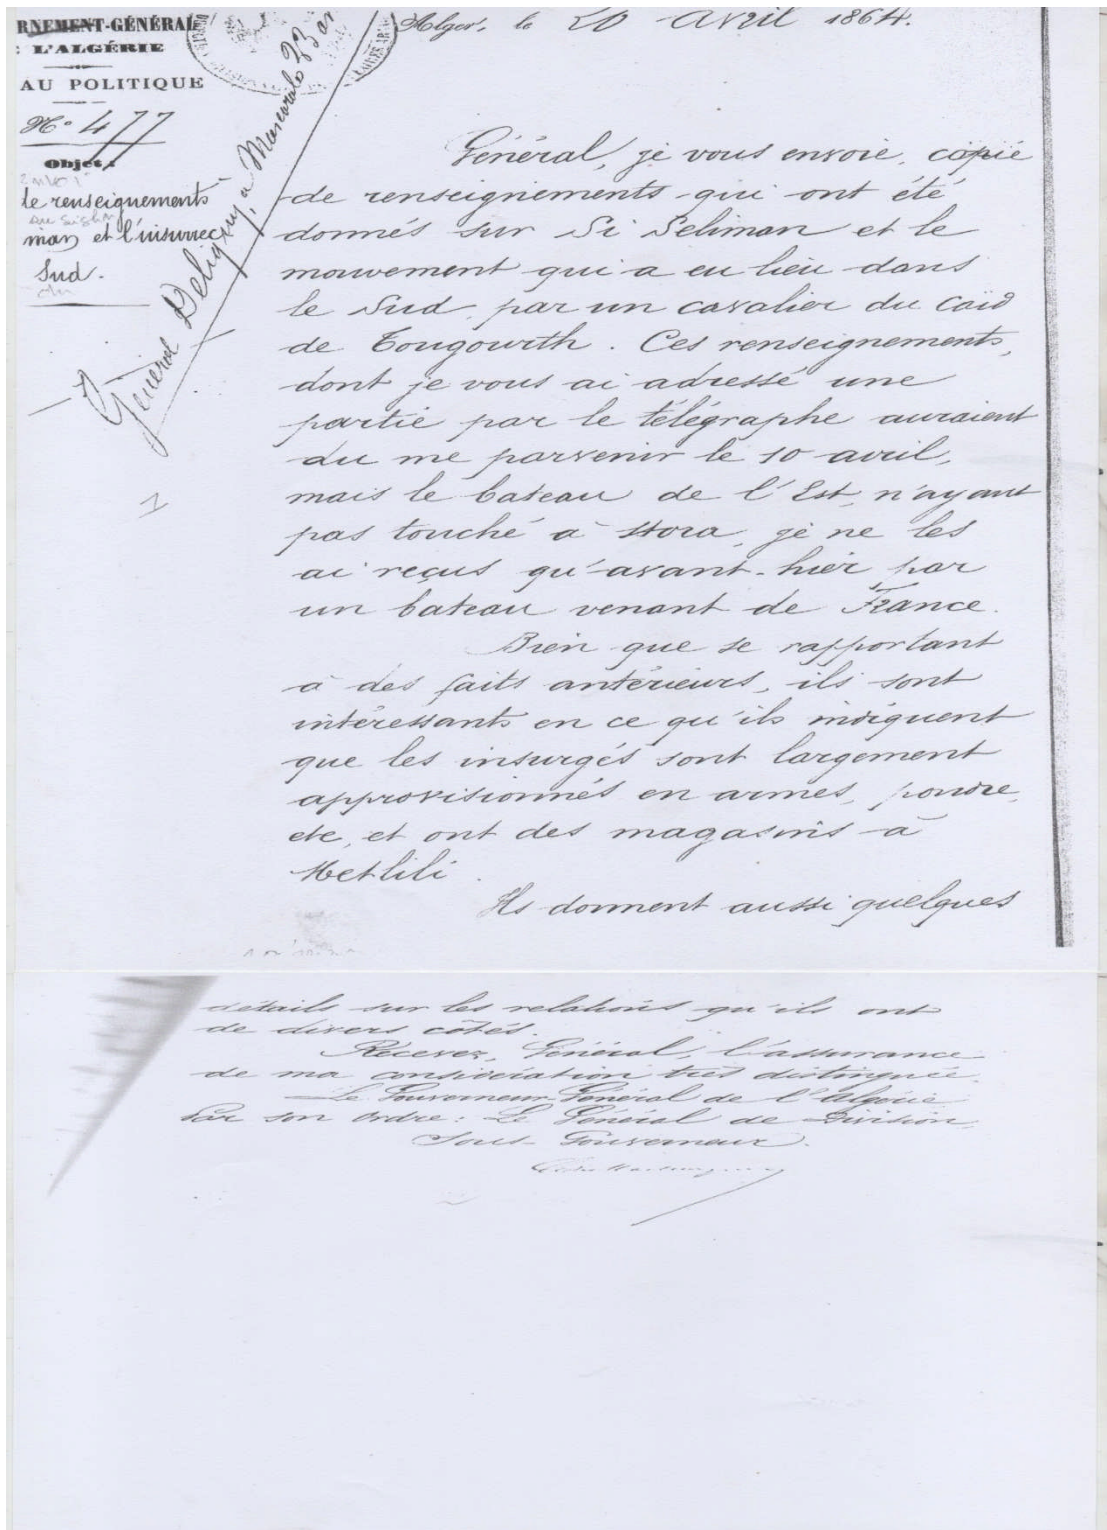 RNEMENT-GÉNÉRAL
L'ALGÉRIE
AU POLITIQUE
N° 477
Objet:
de renseignements
man et l'insurrec
Sud.
Général Deligny, à Mascara le 23 a
1
Alger, le 20 avril 1864.
Général, je vous envoie, copie
de renseignements qui ont été
donnés sur Si Seliman et le
mouvement qui a eu lieu dans
le Sud, par un cavalier du Caïd
de Tougourth. Ces renseignements,
dont je vous ai adressé une
partie par le télégraphe auraient
du me parvenir le 10 avril,
mais le bateau de l'Est, n'ayant
pas touché à Stora, je ne les
ai reçus qu'avant-hier par
un bateau venant de France.
Bien que se rapportant
à des faits antérieurs, ils sont
intéressants en ce qu'ils indiquent
que les insurgés sont largement
approvisionnés en armes, poudre,
etc, et ont des magasins à
Metlili.
Ils donnent aussi quelques
détails sur les relations qu'ils ont
de divers côtés.
Recevez, Général, l'assurance
de ma considération très distinguée.
Le Gouverneur Général de l'Algérie
Par son ordre: Le Général de Division,
Sous-Gouverneur.